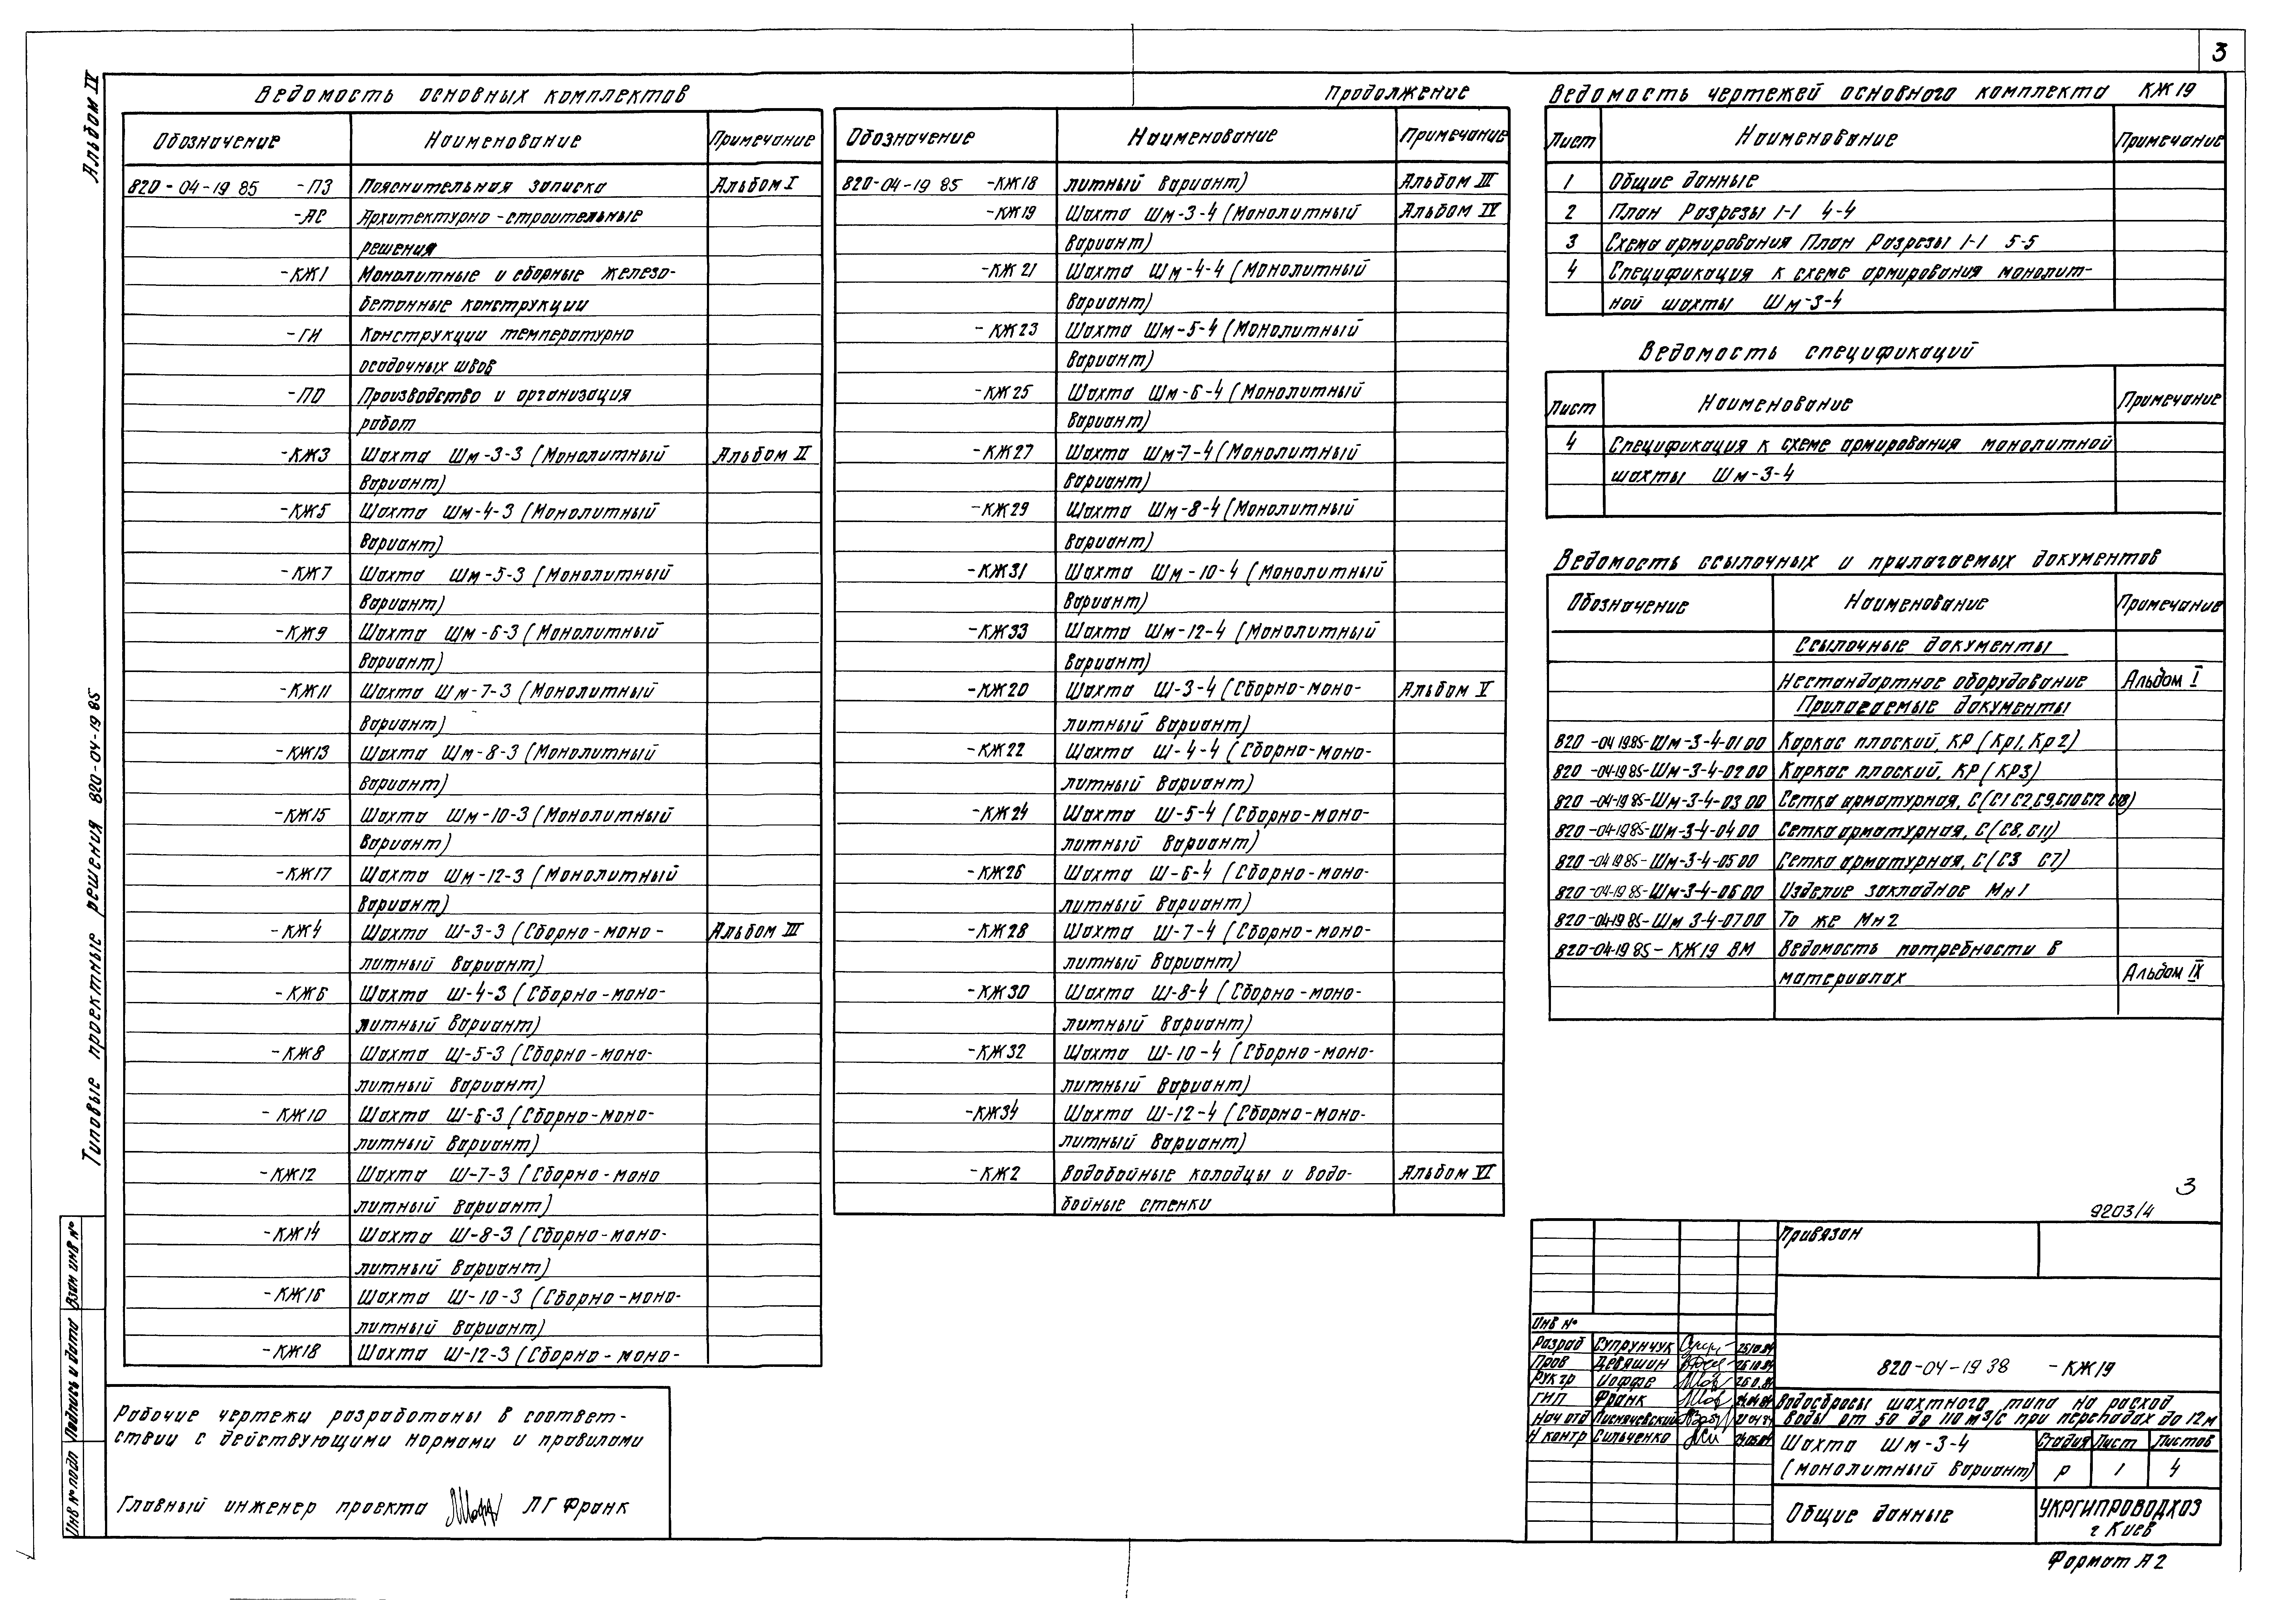 3
Альбом IV
Типовые проектные решения 820-04-19 85
Взам инв №
Подпись и дата
Инв № подл
Ведомость основных комплектов
Обозначение Наименование Примечание
820-04-19 85 -ПЗ Пояснительная записка Альбом I
-АС Архитектурно-строительные
решения
-КЖ1 Монолитные и сборные железо-
бетонные конструкции
-ГИ Конструкции температурно
осадочных швов
-ПО Производство и организация
работ
-КЖ3 Шахта Шм-3-3 (Монолитный Альбом II
вариант)
-КЖ5 Шахта Шм-4-3 (Монолитный
вариант)
-КЖ7 Шахта Шм-5-3 (Монолитный
вариант)
-КЖ9 Шахта Шм-6-3 (Монолитный
вариант)
-КЖ11 Шахта Шм-7-3 (Монолитный
вариант)
-КЖ13 Шахта Шм-8-3 (Монолитный
вариант)
-КЖ15 Шахта Шм-10-3 (Монолитный
вариант)
-КЖ17 Шахта Шм-12-3 (Монолитный
вариант)
-КЖ4 Шахта Ш-3-3 (Сборно-моно- Альбом III
литный вариант)
-КЖ6 Шахта Ш-4-3 (Сборно-моно-
литный вариант)
-КЖ8 Шахта Ш-5-3 (Сборно-моно-
литный вариант)
-КЖ10 Шахта Ш-6-3 (Сборно-моно-
литный вариант)
-КЖ12 Шахта Ш-7-3 (Сборно-моно
литный вариант)
-КЖ14 Шахта Ш-8-3 (Сборно-моно-
литный вариант)
-КЖ16 Шахта Ш-10-3 (Сборно-моно-
литный вариант)
-КЖ18 Шахта Ш-12-3 (Сборно-моно-
Продолжение
Обозначение Наименование Примечание
820-04-19 85 -КЖ18 литный вариант) Альбом III
-КЖ19 Шахта Шм-3-4 (Монолитный Альбом IV
вариант)
-КЖ21 Шахта Шм-4-4 (Монолитный
вариант)
-КЖ23 Шахта Шм-5-4 (Монолитный
вариант)
-КЖ25 Шахта Шм-6-4 (Монолитный
вариант)
-КЖ27 Шахта Шм-7-4 (Монолитный
вариант)
-КЖ29 Шахта Шм-8-4 (Монолитный
вариант)
-КЖ31 Шахта Шм-10-4 (Монолитный
вариант)
-КЖ33 Шахта Шм-12-4 (Монолитный
вариант)
-КЖ20 Шахта Ш-3-4 (Сборно-моно- Альбом V
литный вариант)
-КЖ22 Шахта Ш-4-4 (Сборно-моно-
литный вариант)
-КЖ24 Шахта Ш-5-4 (Сборно-моно-
литный вариант)
-КЖ26 Шахта Ш-6-4 (Сборно-моно-
литный вариант)
-КЖ28 Шахта Ш-7-4 (Сборно-моно-
литный вариант)
-КЖ30 Шахта Ш-8-4 (Сборно-моно-
литный вариант)
-КЖ32 Шахта Ш-10-4 (Сборно-моно-
литный вариант)
-КЖ34 Шахта Ш-12-4 (Сборно-моно-
литный вариант)
-КЖ2 Водобойные колодцы и водо- Альбом VI
бойные стенки
Ведомость чертежей основного комплекта КЖ19
Лист Наименование Примечание
1 Общие данные
2 План Разрезы 1-1 4-4
3 Схема армирования План Разрезы 1-1 5-5
4 Спецификация к схеме армирования монолит-
ной шахты Шм-3-4
Ведомость спецификаций
Лист Наименование Примечание
4 Спецификация к схеме армирования монолитной
шахты Шм-3-4
Ведомость ссылочных и прилагаемых документов
Обозначение Наименование Примечание
Ссылочные документы
Нестандартное оборудование Альбом I
Прилагаемые документы
820-04 1985-Шм-3-4-01 00 Каркас плоский, КР (Кр1, Кр2)
820-04-19 85-Шм-3-4-02 00 Каркас плоский, КР (КР3)
820-04-19 85-Шм-3-4-03 00 Сетка арматурная, С (С1 С2, С9, С10 С12 С18)
820-04-19 85-Шм-3-4-04 00 Сетка арматурная, С (С8, С11)
820-04 19 85-Шм-3-4-05 00 Сетка арматурная, С (С3 С7)
820-04-19 85-Шм-3-4-06 00 Изделие закладное Мн1
820-04-19 85-Шм 3-4-07 00 То же Мн2
820-04-19 85-КЖ19 ВМ Ведомость потребности в
материалах Альбом IX
3
9203/4
Привязан
Инв №
Разраб Супрунчук 25.10.84
Пров Девяшин 26.10.84
Рук гр Иоффе
ГИП Франк
Нач отд
Н контр Сильченко
820-04-19 38 -КЖ19
Водосбросы шахтного типа на расход
воды от 50 до 110 м³/с при перепадах до 12м
Шахта Шм-3-4
(монолитный вариант)
Стадия Лист Листов
Р 1 4
Общие данные
УКРГИПРОВОДХОЗ
г Киев
Формат А2
Рабочие чертежи разработаны в соответ-
ствии с действующими нормами и правилами
Главный инженер проекта Л Г Франк